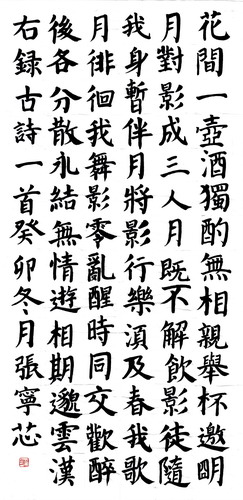 花間一壺酒獨酌無相親舉杯邀明
月對影成三人月既不解飲影徒隨
我身暫伴月將影行樂須及春我歌
月徘徊我舞影零亂醒時同交歡醉
後各分散永結無情遊相期邈雲漢
右録古詩一首癸卯冬月張寧芯